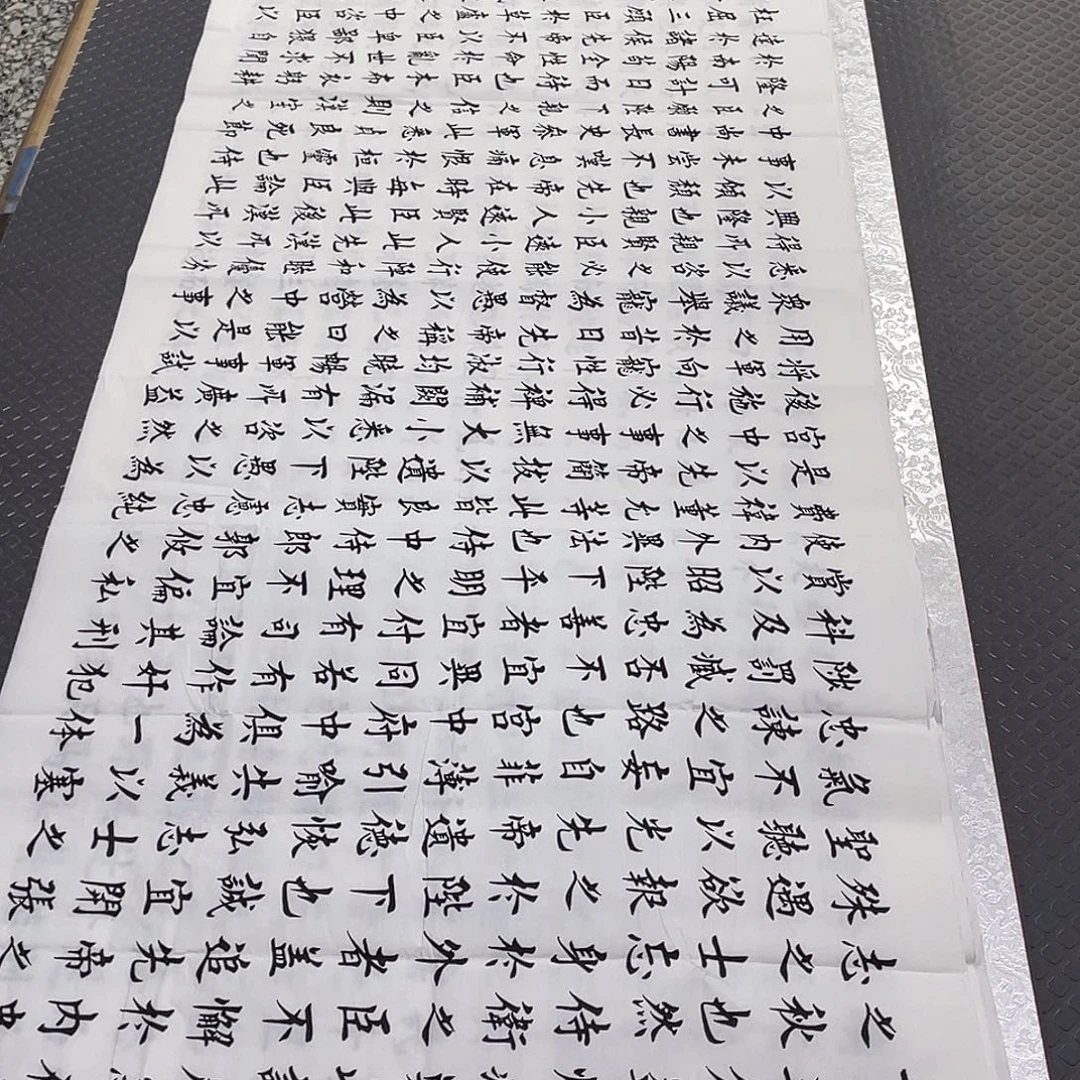 之秋也然侍衛之臣不懈於內忠
志之士忘身於外者蓋追先帝之
殊遇欲報之於陛下也誠宜開張
聖聽以光先帝遺德恢弘志士之
氣不宜妄自菲薄引喻失義以塞
忠諫之路也宮中府中俱為一体
陟罰臧否不宜異同若有作奸犯
科及為忠善者宜付有司論其刑
賞以昭陛下平明之理不宜偏私
使內外異法也侍中侍郎郭攸之
費禕董允等此皆良實志慮忠純
是以先帝簡拔以遺陛下愚以為
宮中之事事無大小悉以咨之然
後施行必得裨補闕漏有所廣益
將軍向寵性行淑均曉暢軍事試
用之於昔日先帝稱之曰能是以
衆議舉寵為督愚以為營中之事
悉以咨之必能使行陣和睦優劣
得所親賢臣遠小人此先漢所以
興隆也親小人遠賢臣此後漢所
以傾頹也先帝在時每與臣論此
事未嘗不嘆息痛恨於桓靈也侍
中尚書長史參軍此悉貞良死節
之臣願陛下親之信之則漢室之
隆可計日而待也臣本布衣躬耕
於南陽苟全性命於亂世不求聞
達於諸侯先帝不以臣卑鄙猥自
枉屈三顧臣於草廬之中咨臣以